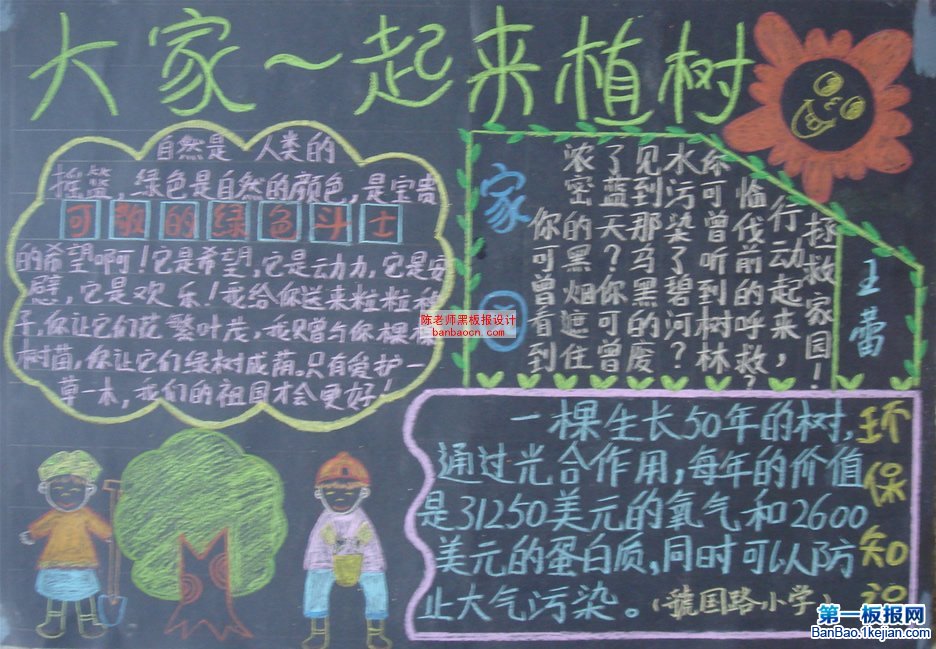 大家一起来植树
自然是 人类的
摇篮,绿色是自然的颜色,是宝贵
可敬的绿色斗士
的希望啊!它是希望,它是动力,它是安
慰,它是欢乐!我给你送来粒粒种
子,你让它们花繁叶茂,我只曾与你棵棵
树苗,你让它们绿树成荫。只有爱护一
草一木,我们的祖国才会更好!
陈老师黑板报设计
banbaocn.com
家园
你可曾看到
浓密的黑烟遮住
了蓝天?你可曾
见到那马黑的废
水污染了碧河?
你可曾听到树林
临伐前的呼救?
行动起来,
拯救家园!
王蕾
环保知识
一棵生长50年的树,
通过光合作用,每年的价值
是31250美元的氧气和2600
美元的蛋白质,同时可以防
止大气污染。(虢国路小学)
第一板报网
BanBao.1kejian.com